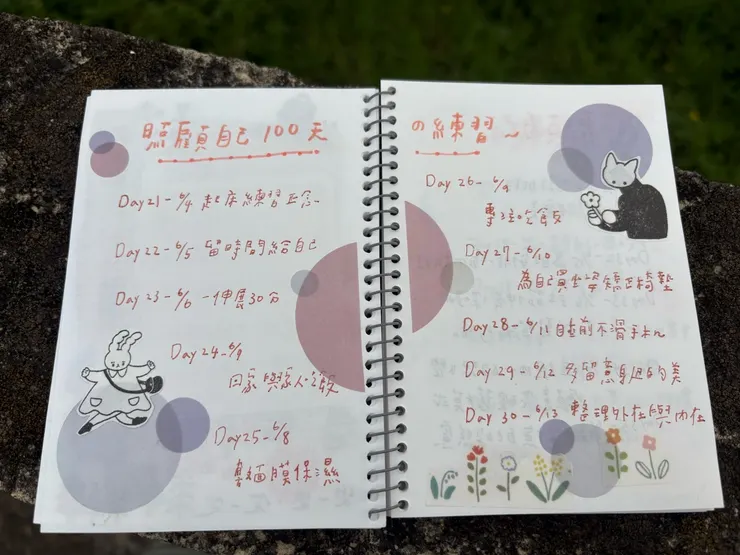 照顧自己 100天
Day 21 - 6/4 起床練習正念
Day 22 - 6/5 留時間給自己
Day 23 - 6/6 伸展30分
Day 24 - 6/7
回家與家人
Day 25 - 6/8
敷面膜保濕
的練習～
Day 26 - 6/9
專注吃飯
Day 27 - 6/10
為自己買坐姿矯正椅墊
Day 28 - 6/11 睡前不滑手机
Day 29 - 6/12 多留意身邊的美
Day 30 - 6/13 整理外在與內在